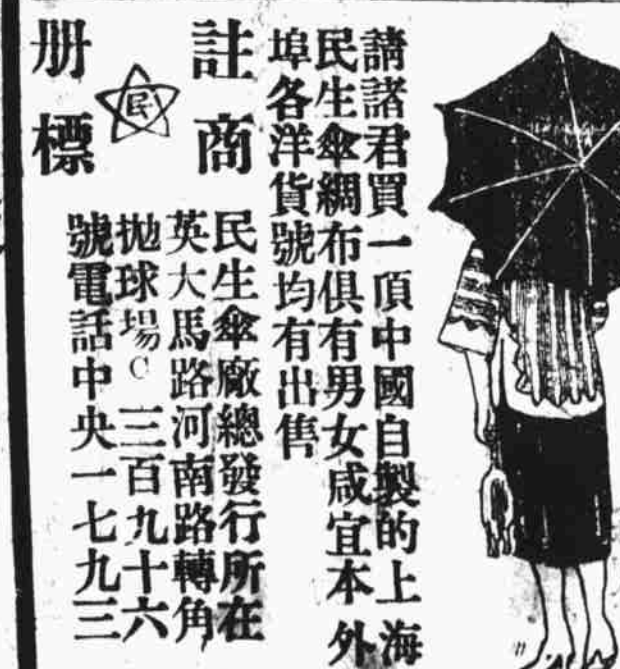 請諸君買一頂中國自製的上海
民生傘綢布俱有男女咸宜本外
埠各洋貨號均有出售
註册
商標
民
民生傘廠總發行所在
英大馬路河南路轉角
拋球場C三百九十六
號電話中央一七九三